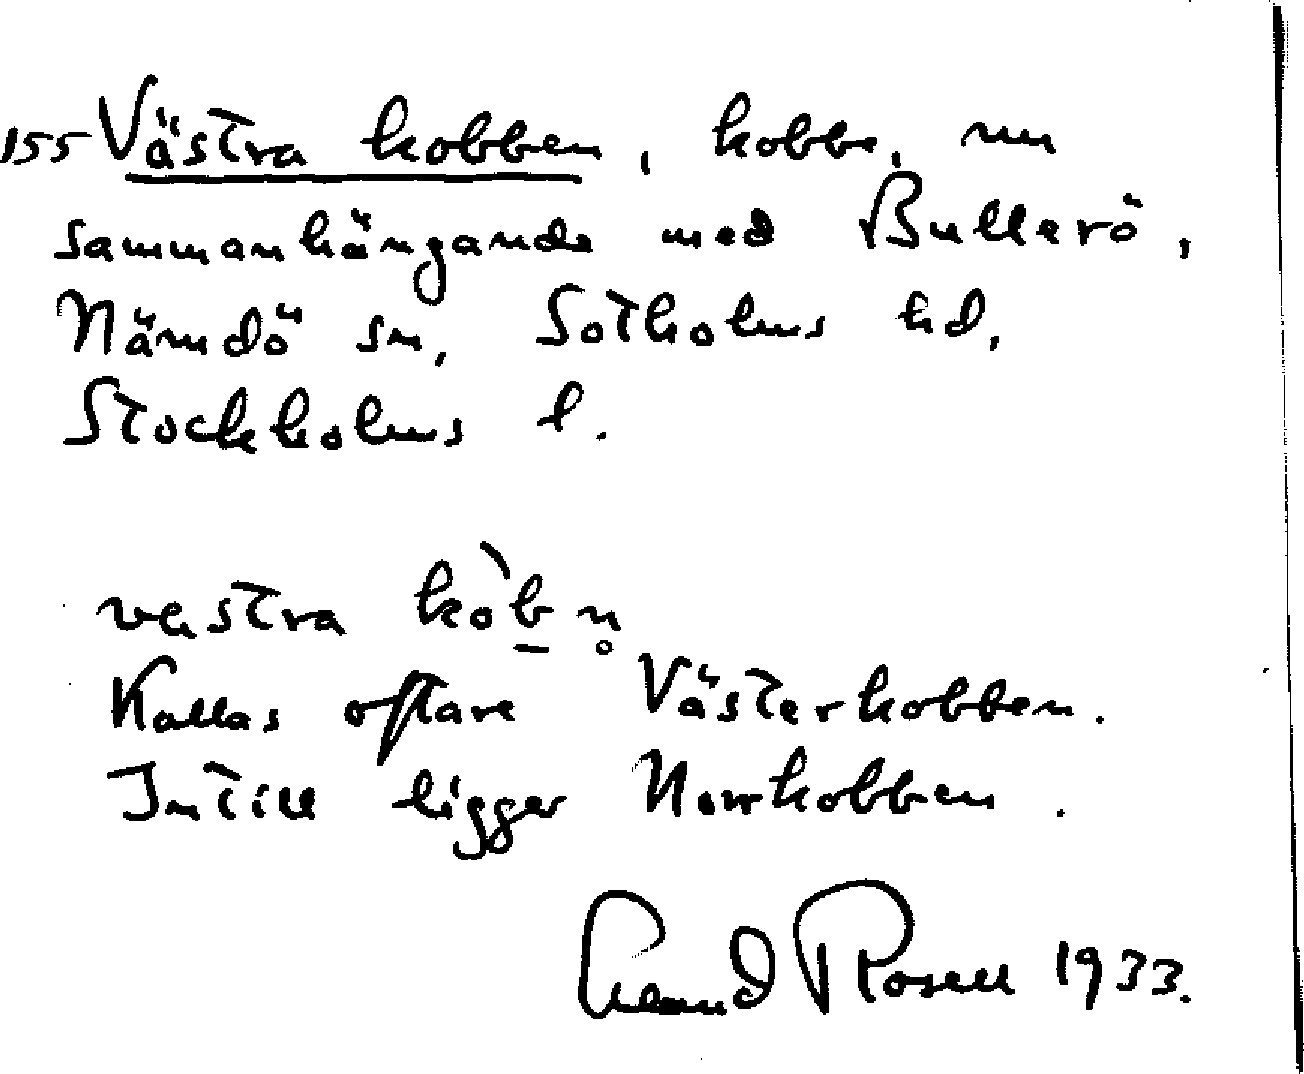 155 Västra kobben, kobbe, nu
sammanhängande med Bullerö,
Nämdö sn, Sotholms hd,
Stockholms l.
vestra kòb̲n̥
Kallas oftare Västerkobben.
Intill ligger Norrkobben.
Rosell 1933.